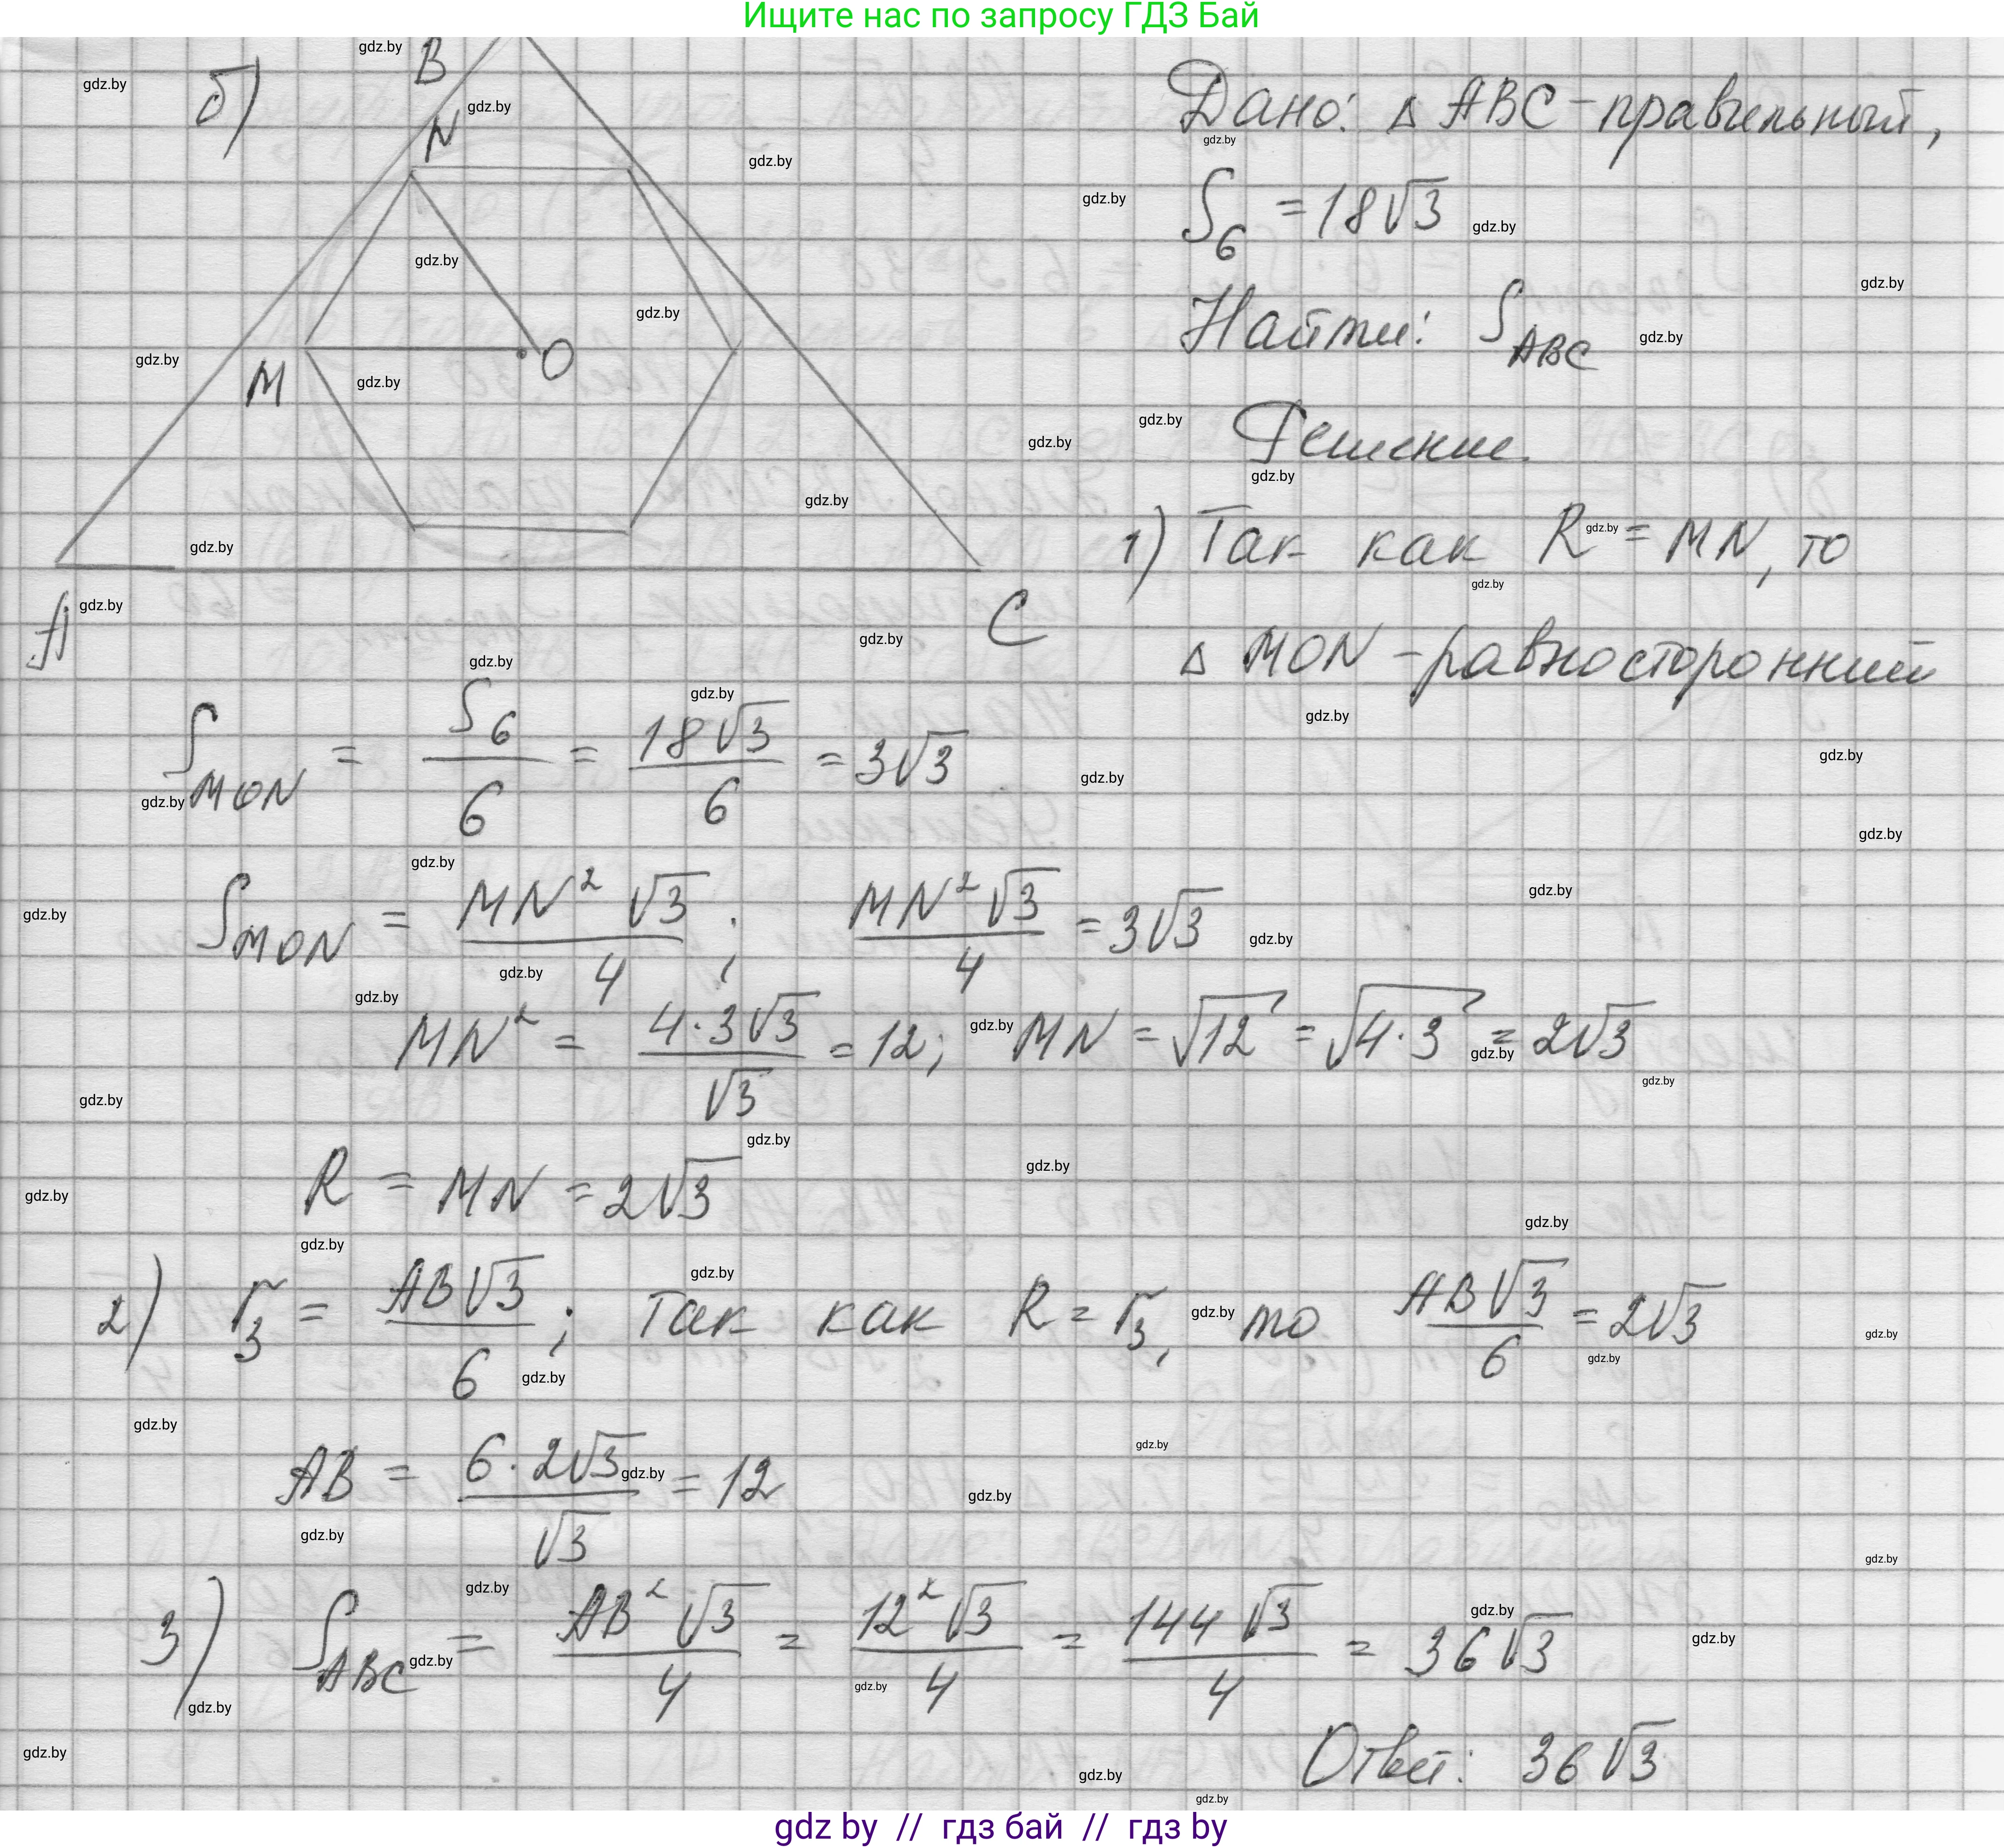 Ищите нас по запросу ГДЗ Бай
б)
B
N
M
O
A
C
Дано: △ ABC - правильный,
S₆ = 18√3
Найти: S_ABC
Решение.
1) Так как R = MN, то
△ MON - равносторонний
S_MON = S₆/6 = 18√3/6 = 3√3
S_MON = MN²√3/4; MN²√3/4 = 3√3
MN² = 4·3√3/√3 = 12; MN = √12 = √4·3 = 2√3
R = MN = 2√3
2) r₃ = AB√3/6; Так как R = r₃, то AB√3/6 = 2√3
AB = 6·2√3/√3 = 12
3) S_ABC = AB²√3/4 = 12²√3/4 = 144√3/4 = 36√3
Ответ: 36√3
gdz by // гдз бай // гдз by